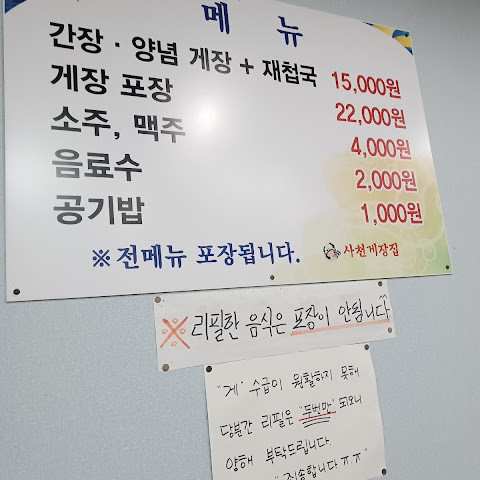 메뉴
간장 · 양념 게장 + 재첩국 15,000원
게장 포장 22,000원
소주, 맥주 4,000원
음료수 2,000원
공기밥 1,000원
※전메뉴 포장됩니다.
사천게장집
※리필한 음식은 포장이 안됩니다^^
"게" 수급이 원활하지 못해
당분간 리필은 "두번만" 되오니
양해 부탁드립니다.
"죄송합니다 ㅠ.ㅠ"